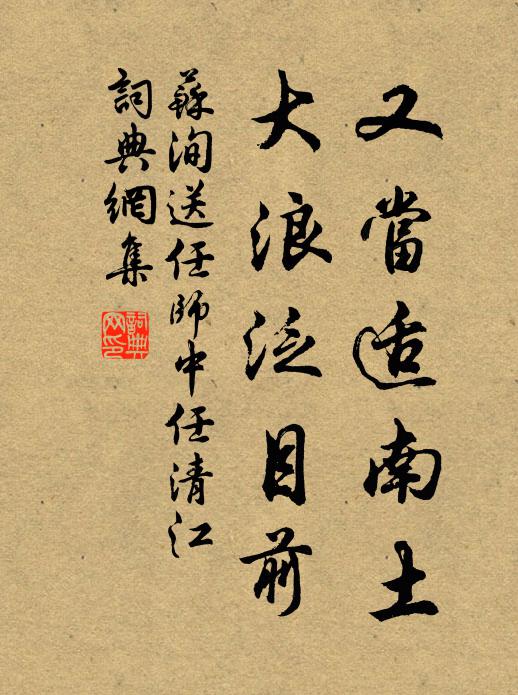 又當适南土
大浪泛目前
蘇洵送任師中任清江
詞典網集
詞典网印